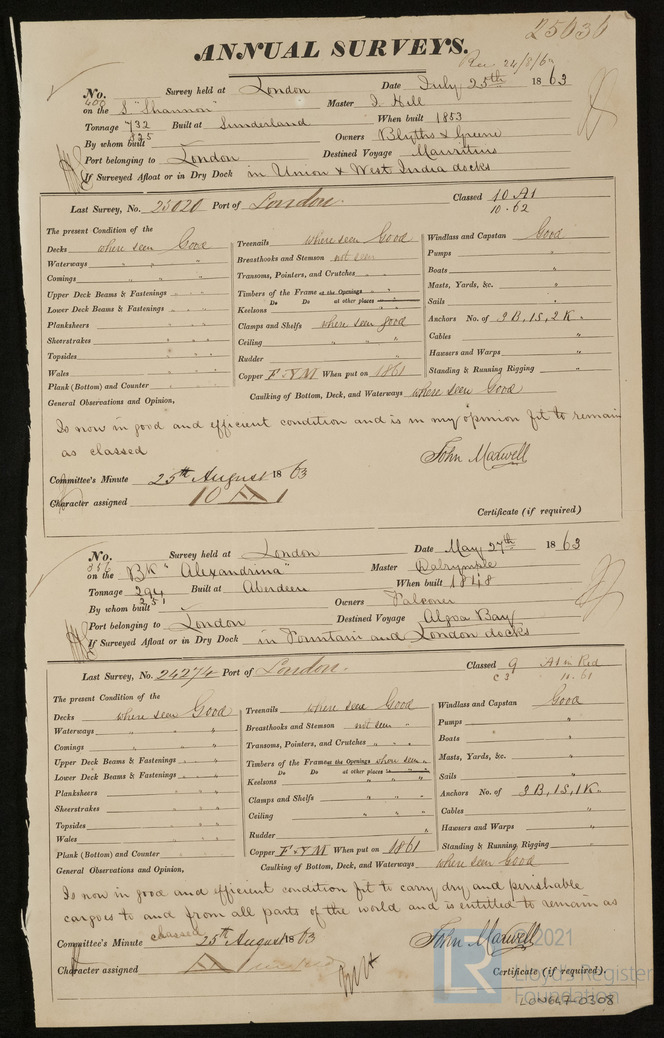 25636
ANNUAL SURVEYS.
Rec 24/8/63
No. 400 Survey held at London Date July 25th 1863
on the S "Shannon" Master J. Hill
Tonnage 732 825 Built at Sunderland When built 1853
By whom built Owners Blyths & Greene
Port belonging to London Destined Voyage Mauritius
If Surveyed Afloat or in Dry Dock in Union & West India docks
Last Survey, No. 23020 Port of London. Classed 10 A1
10.62
The present Condition of the
Decks where seen Good
Waterways " " "
Comings " " "
Upper Deck Beams & Fastenings " " "
Lower Deck Beams & Fastenings " " "
Planksheers " " "
Sheerstrakes " " "
Topsides " " "
Wales " " "
Plank (Bottom) and Counter " " "
Treenails where seen Good
Breasthooks and Stemson not seen
Transoms, Pointers, and Crutches " "
Timbers of the Frame at the Openings " "
Do Do at other places " "
Keelsons " "
Clamps and Shelfs where seen good
Ceiling " " "
Rudder "
Copper F & YM When put on 1861
Windlass and Capstan Good
Pumps "
Boats "
Masts, Yards, &c. "
Sails "
Anchors No. of 3B, 1S, 2K.
Cables "
Hawsers and Warps "
Standing & Running Rigging "
Caulking of Bottom, Deck, and Waterways where seen Good
General Observations and Opinion,
Is now in good and efficient condition and is in my opinion fit to remain
as classed
John Maxwell
Committee's Minute 25th August 1863
Character assigned 10 A 1
Certificate (if required)
No. 356 Survey held at London Date May 27th 1863
on the BK "Alexandrina" Master Dalrymple
Tonnage 294 251 Built at Aberdeen When built 1848
By whom built Owners Falconer
Port belonging to London Destined Voyage Algoa Bay
If Surveyed Afloat or in Dry Dock in Fountain and London docks
Last Survey, No. 24274 Port of London. Classed 9 A1 in Red
C3 10.61
The present Condition of the
Decks where seen Good
Waterways " " "
Comings " " "
Upper Deck Beams & Fastenings " " "
Lower Deck Beams & Fastenings " " "
Planksheers " " "
Sheerstrakes " " "
Topsides " " "
Wales " " "
Plank (Bottom) and Counter " " "
Treenails where seen Good
Breasthooks and Stemson not seen "
Transoms, Pointers, and Crutches " " "
Timbers of the Frame at the Openings where seen "
Do Do at other places " " "
Keelsons " " "
Clamps and Shelfs " " "
Ceiling " " "
Rudder "
Copper F & YM When put on 1861
Windlass and Capstan Good
Pumps "
Boats "
Masts, Yards, &c. "
Sails "
Anchors No. of 3B, 1S, 1K.
Cables "
Hawsers and Warps "
Standing & Running Rigging "
Caulking of Bottom, Deck, and Waterways where seen Good
General Observations and Opinion,
Is now in good and efficient condition fit to carry dry and perishable
cargoes to and from all parts of the world and is entitled to remain as
classed
Committee's Minute 25th August 1863
John Maxwell
Character assigned A
Certificate (if required).
LR © 2021
Lloyd's Register
Foundation
LON647-0308